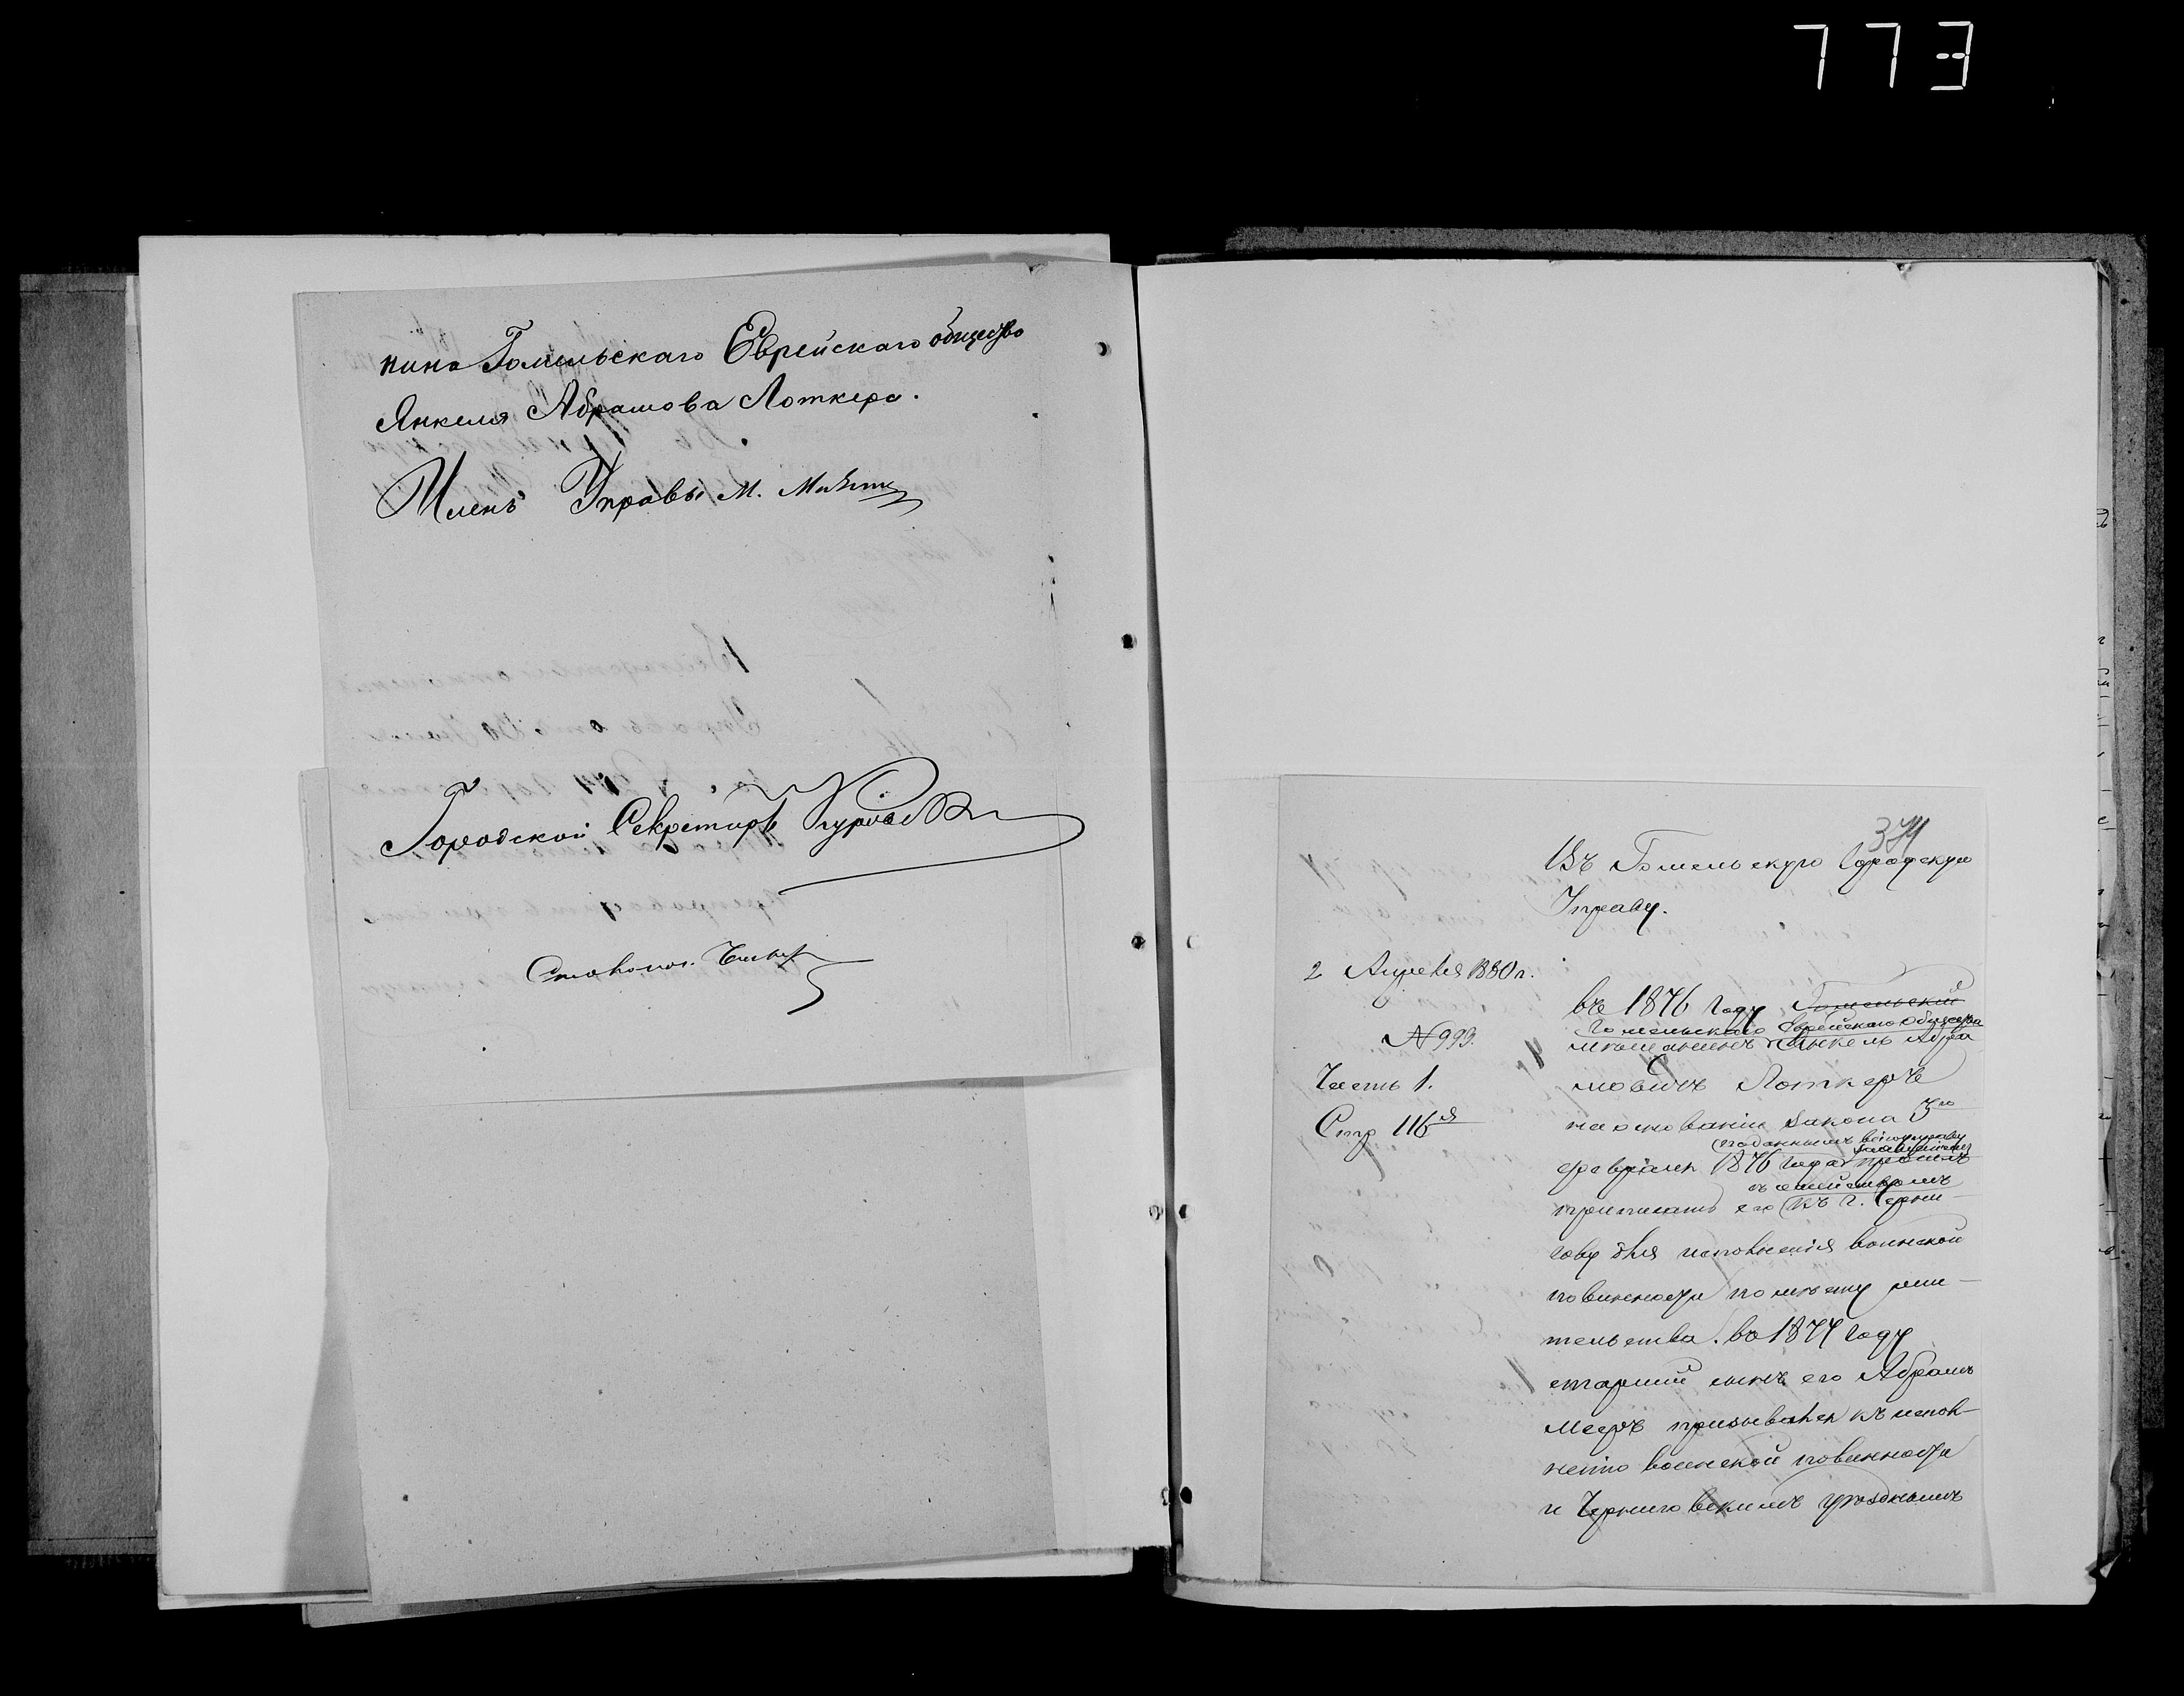 773
нина Гомельскаго Еврейскаго общество
Янкеля Абрамова Лоткера.
Членъ Управы М.
Городской Секретарь
Столонач.
374
Въ Гомельскую Городскую
Управу.
2 Апреля 1880 г.
№ 999.
Часть 1.
Стр 116я
въ 1876 году Гомельский
Гомельскаго Еврейскаго Общества
мѣщанинъ Янкель Абра
мовичъ Лоткеръ
на основании закона 3го
поданнымъ
февраля 1876 года просилъ
съ семействомъ
приписать его къ г. Черни-
гову для исполнения воинской
повинности по мѣсту жи-
тельства. въ 1877 году
старший сынъ его Абрамъ
Мееръ призывался къ испол-
нению воинской повинности
и Черниговскимъ уѣзднымъ